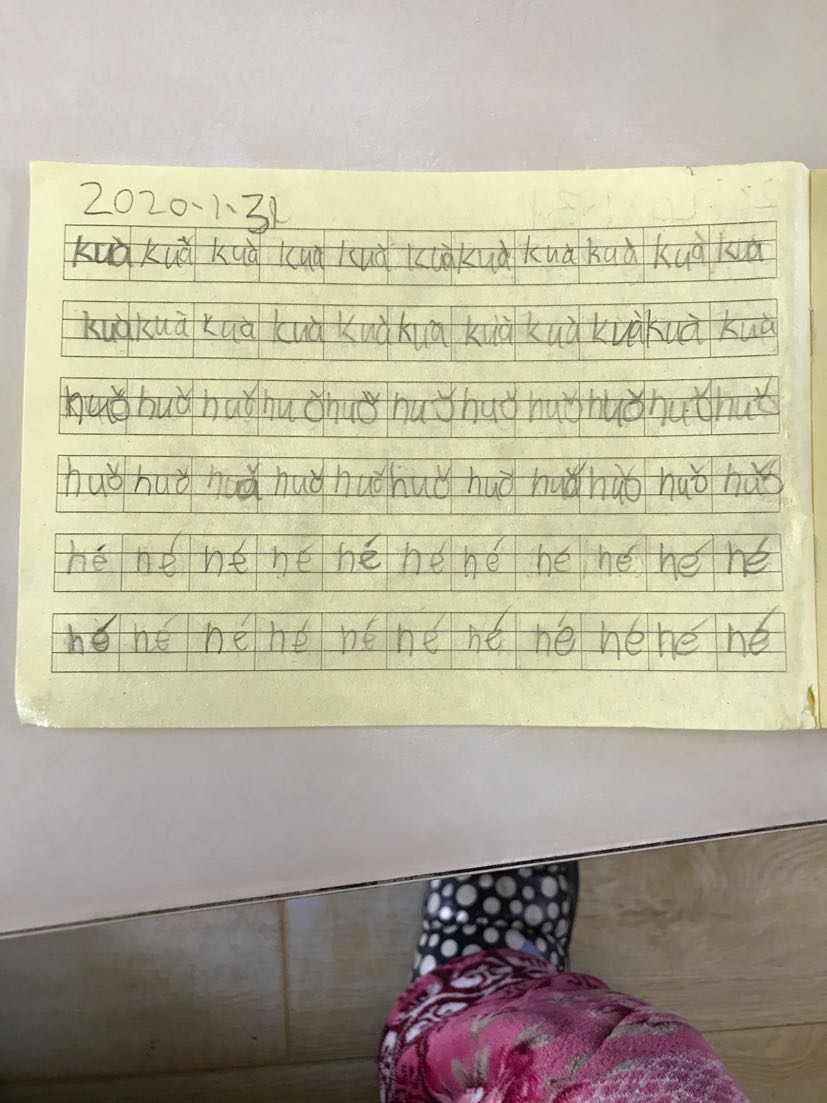 2020.1.31
kuà kuà kuà kuà kuà kuà kuà kuà kuà kuà kuà
kuà kuà kuà kuà kuà kuà kuà kuà kuà kuà kuà
huǒ huǒ huǒ huǒ huǒ huǒ huǒ huǒ huǒ huǒ huǒ
huǒ huǒ huǒ huǒ huǒ huǒ huǒ huǒ huǒ huǒ huǒ
hé hé hé hé hé hé hé hé hé hé hé
hé hé hé hé hé hé hé hé hé hé hé